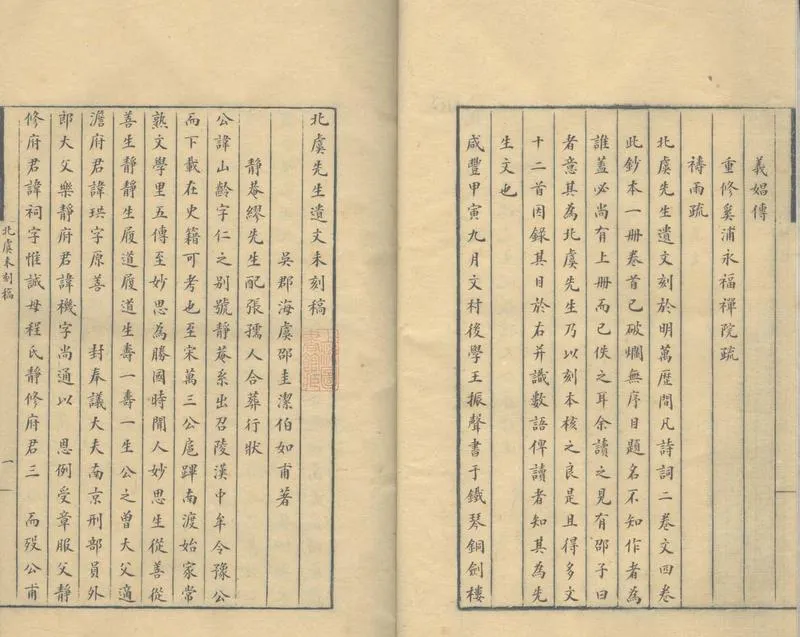 義娼傳
重修奚浦永福禪院疏
禱雨疏
北虞先生遺文刻於明萬歷間凡詩詞二卷文四卷
此鈔本一册卷首已破爛無序目題名不知作者為
誰蓋必尚有上册而已佚之耳余讀之見有邵子曰
者意其為北虞先生乃以刻本核之良是且得多文
十二首因録其目於右并識數語俾讀者知其為先
生文也
咸豐甲寅九月文村後學王振聲書于鐵琴銅劍樓
北虞先生遺文未刻稿
吳郡海虞邵圭潔伯如甫著
靜菴繆先生配張孺人合葬行狀
公諱山齡字仁之别號靜菴系出召陵漢中牟令豫公
而下載在史籍可考也至宋萬三公扈蹕南渡始家常
熟文學里五傳至妙思為勝國時聞人妙思生從善從
善生靜靜生履道履道生壽一壽一生公之曾大父適
澹府君諱珙字原善 封奉議大夫南京刑部員外
郎大父樂靜府君諱機字尚通以 恩例受章服父靜
修府君諱祠字惟誠母程氏靜修府君三 而歿公甫
北虞未刻稿
一